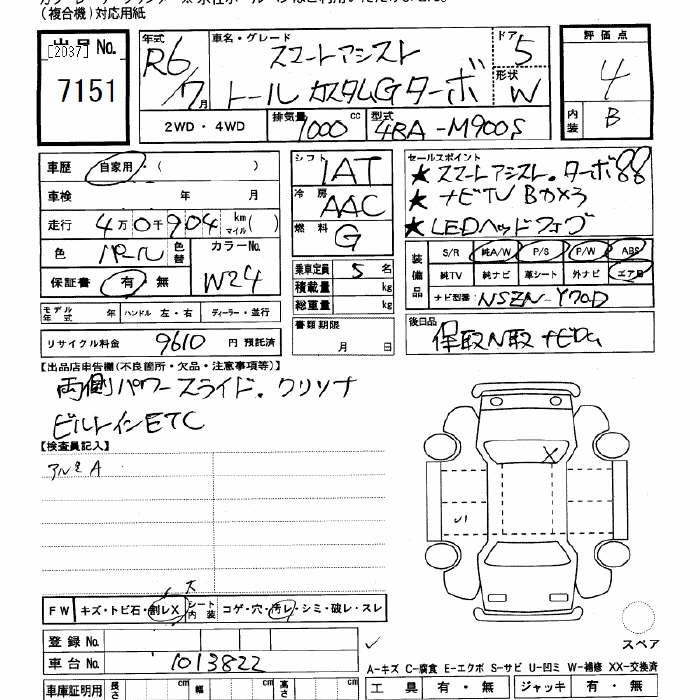 (複合機)対応用紙
出品No.
[2037]
7151
年式
R6/7月
車名・グレード
スマートアシスト
トール カスタムG ターボ
ドア
5
形状
W
評価点
4
内装
B
2WD・4WD
排気量 1000 cc
型式 4BA-M900S
車歴 自家用・( )
車検 年 月
走行 4万0千904 km マイル( )
色 パール 色替
カラーNo. W24
保証書 有 無
シフト 1AT
冷房 AAC
燃料 G
乗車定員 5 名
積載量 kg
総重量 kg
書類期限
月 日
セールスポイント
★スマートアシスト・ターボ88
★ナビTV Bカメラ
★LEDヘッドフォグ
装備品
S/R 純A/W P/S P/W ABS
純TV 純ナビ 革シート 外ナビ エアB
ナビ型番 NSZN-Y70D
後日品
保取N取 ナビDa
モデル年式 年 ハンドル 左・右 ディーラー・並行
リサイクル料金 9610 円 預託済
【出品店申告欄(不良箇所・欠品・注意事項等)】
両側パワースライド.クリソナ
ビルトインETC
【検査員記入】
アルミA
FW キズ・トビ石・割レX 大 シート内装 コゲ・穴・汚レ・シミ・破レ・スレ
X
U1
スペア
登録No.
車台No. 1013822
A-キズ C-腐食 E-エクボ S-サビ U-凹ミ W-補修 XX-交換済
車庫証明用 長さ cm 幅 cm 高さ cm
工具 有・無 ジャッキ 有・無